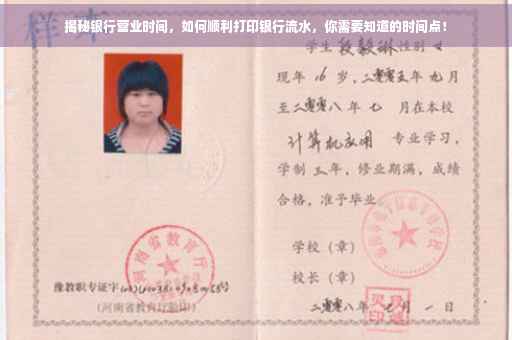 揭秘银行营业时间，如何顺利打印银行流水，你需要知道的时间点！
样本
学生 段毅琳 性别 女
现年 16 岁，二零零五年 九月
至二零零八年 七 月在本校
计算机应用 专业学习，
学制 三 年，修业期满，成绩
合格，准予毕业
学校（章）
校长（章）
河南省教育厅
豫教职专证字
(河南省教育厅验印)
二零零八年 月 一 日